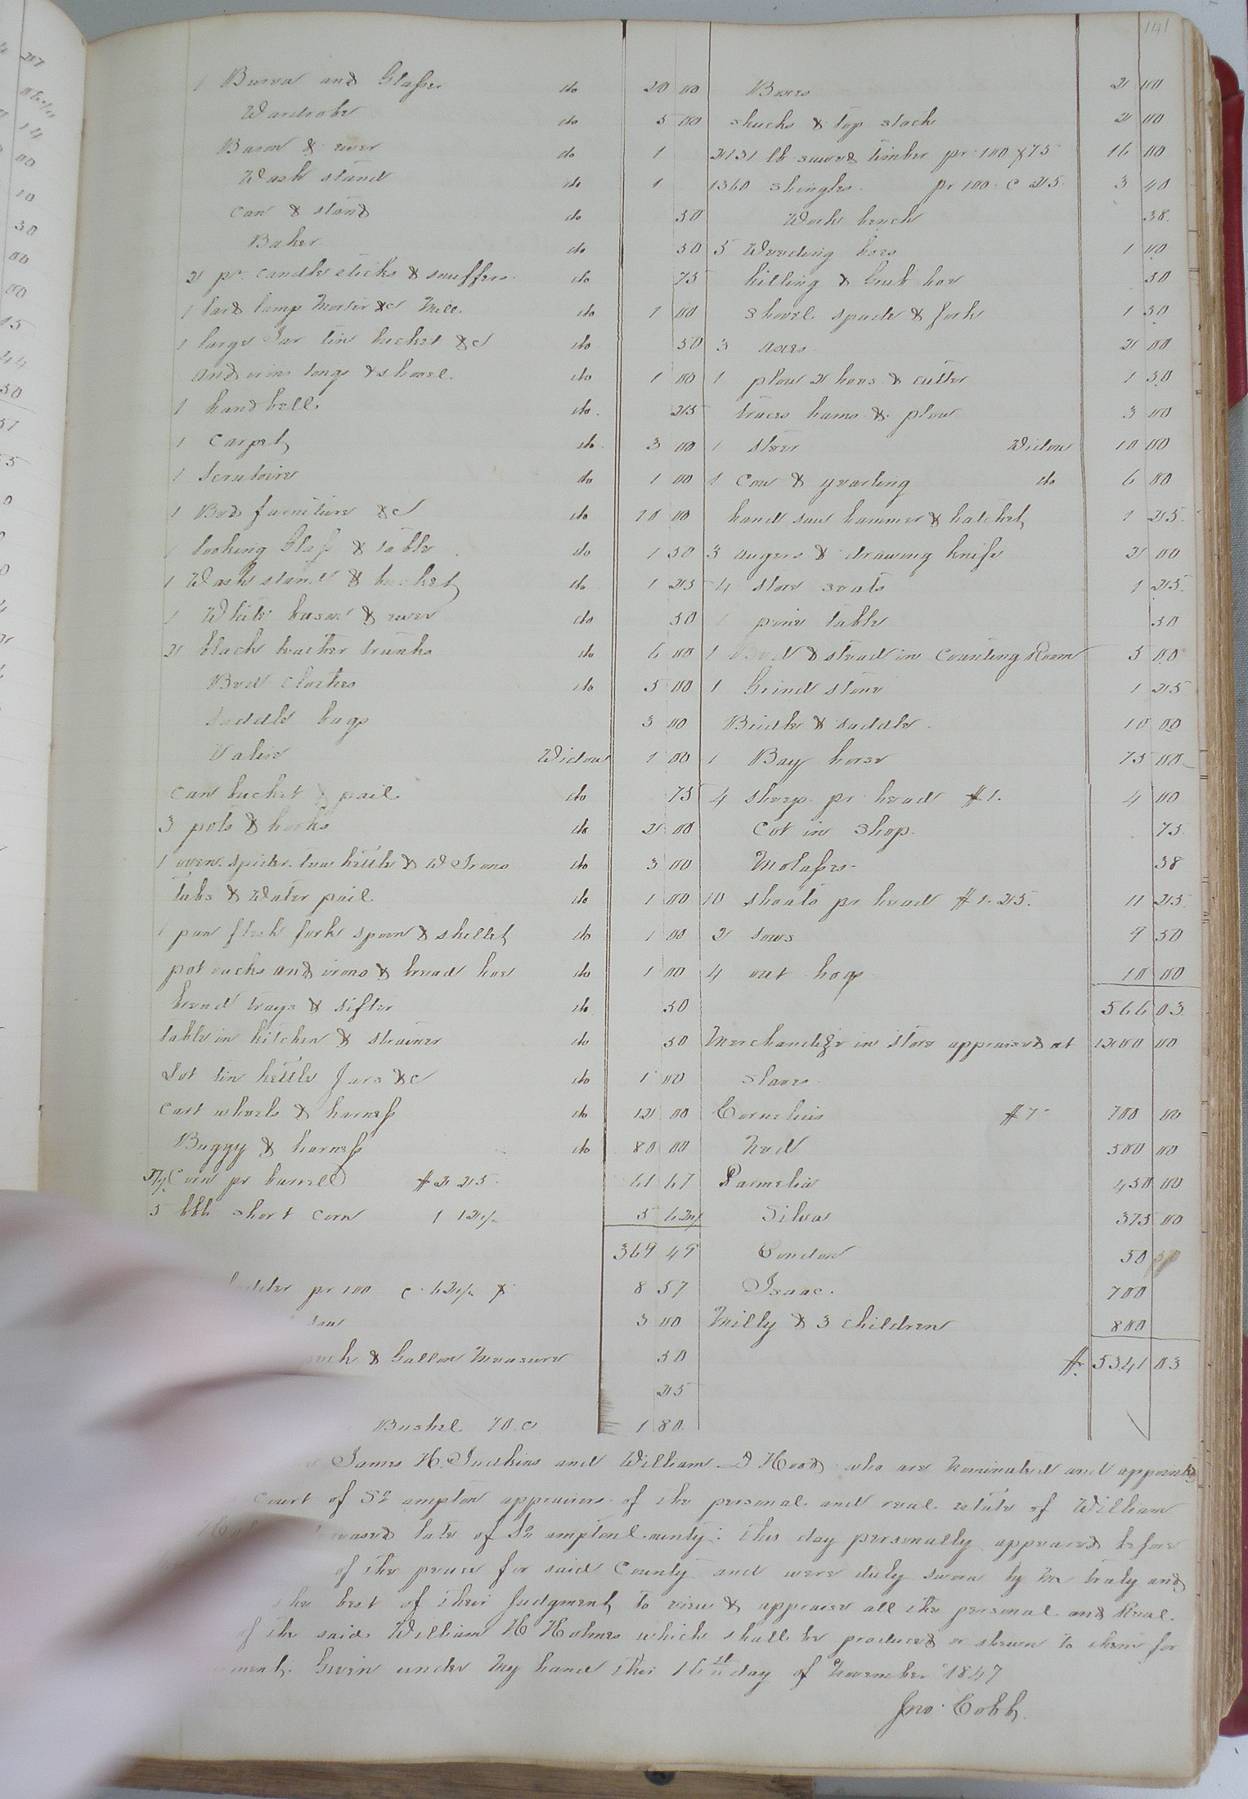 141
1 Bureau and Glass do 20 00
Wardrobe do 5 00
Bason & ewer do 1
Wash stand do 1
Can & stand do 50
Baker do 50
2 pr candle sticks & snuffers do 75
1 lard lamp Morter &c Mill do 1 00
1 large Jar tin bucket &c do 50
And irons tongs & shovel do 1 00
1 hand bell do 25
1 Carpet do 3 00
1 Scrutoire do 1 00
1 Bed furniture &c do 10 00
1 looking Glass & table do 1 50
1 Wash stand & bucket do 1 25
1 White bason & ewer do 50
2 black leather trunks do 6 00
Bed Clothes do 5 00
Saddle bags 3 00
Valise Widow 1 00
Can bucket & pail do 75
3 pots & hooks do 2 00
1 oven spider tea kettle & W Irons do 3 00
tubs & Water pail do 1 00
1 pan flesh fork spoon & skillet do 1 00
pot racks and irons & bread hoe do 1 00
bread trays & sifter do 50
table in kitchen & strainer do 50
Lot tin kettle Jars &c do 1 00
Cart wheels & harness do 12 00
Buggy & harness do 80 00
Corn pr barrel $2 25 61 67
5 bbls short corn 1 12½ 5 62½
369 49
fodder pr 100 c 62½ 8 57
saw 3 00
& Gallon Measure 50
25
Bushel 70 c 1 80
Boxes 2 00
shucks & top stack 2 00
2131 lb sawed timber pr 100 $75 16 00
1360 shingles pr 100 c 25 3 40
Work bench 38
5 Weeding hoes 1 00
hilling & Grub hoe 50
shovel spade & fork 1 50
3 axes 2 00
1 plow 2 hoes & cutter 1 50
traces hams & plow 3 00
1 steer Widow 10 00
1 Cow & yearling do 6 00
hand saw hammer & hatchet 1 25
3 augers & drawing knife 2 00
4 stove seats 1 25
1 pine table 50
1 Bed & stead in Counting Room 5 00
1 Grind stone 1 25
Bridle & saddle 10 00
1 Bay horse 75 00
4 sheep pr head $1. 4 00
Cot in Shop 75
Molasses 38
10 shoats pr head $1.25 11 25
2 sows 9 50
4 out hogs 10 00
566 03
Merchandize in store appraised at 1200 00
slaves
Cornelius $7 700 00
Ned 500 00
Parmelia 450 00
Silva 375 00
Condon 50
Isaac. 700
Milly & 3 children 800
$ 5341 03
James H. Judkins and William D Hood who are Nominated and appointed
Court of So ampton appraisers of the personal and real estate of William
deceased late of So ampton County: this day personally appeared before
of the peace for said County and were duly sworn by me truly and
the best of their Judgment to view & appraise all the personal and Real
of the said William H Holmes which shall be produced or shewn to them for
Given under My hand this 16th day of November 1847
Jno. Cobb.